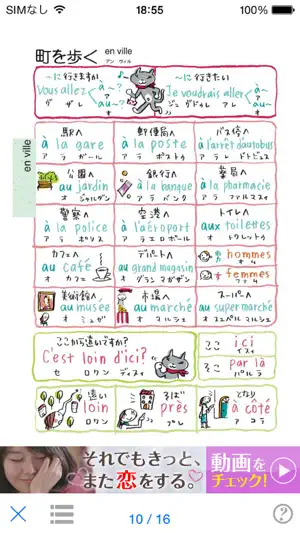 SIMなし
18:55
町を歩く en ville
アン ヴィル
en ville
～に行きますか
Vous allez
à～?
au～?
ヴ ザレ
～に行きたい
Je voudrais aller
à～
au～
ジュ ヴドゥレ アレ
駅へ
à la gare
ア ラ ガール
郵便局へ
à la poste
ア ラ ポストゥ
バス停へ
à l'arrêt d'autobus
公園へ
au jardin
オ ジャルダン
銀行へ
à la banque
ア ラ バンク
薬局へ
à la pharmacie
ア ラ ファルマスィ
警察へ
à la police
ア ラ ポリス
空港へ
à l'aéroport
ア ラエロポール
トイレへ
aux toilettes
オ トワレットゥ
カフェへ
au café
オ カフェ
デパートへ
au grand magasin
オ グラン マガザン
hommes
femmes
美術館へ
au musée
オ ミュゼ
市場へ
au marché
オ マルシェ
スーパーへ
au supermarché
オ スュペル マルシェ
ここから遠いですか?
C'est loin d'ici?
セ ロワン ディスィ
ここ
ici
イスィ
そこ
par là
パル ラ
遠い
loin
ロワン
そば
près
プレ
となり
à côté
ア コテ
それでもきっと、
また恋をする。
動画を
チェック!
10 / 16